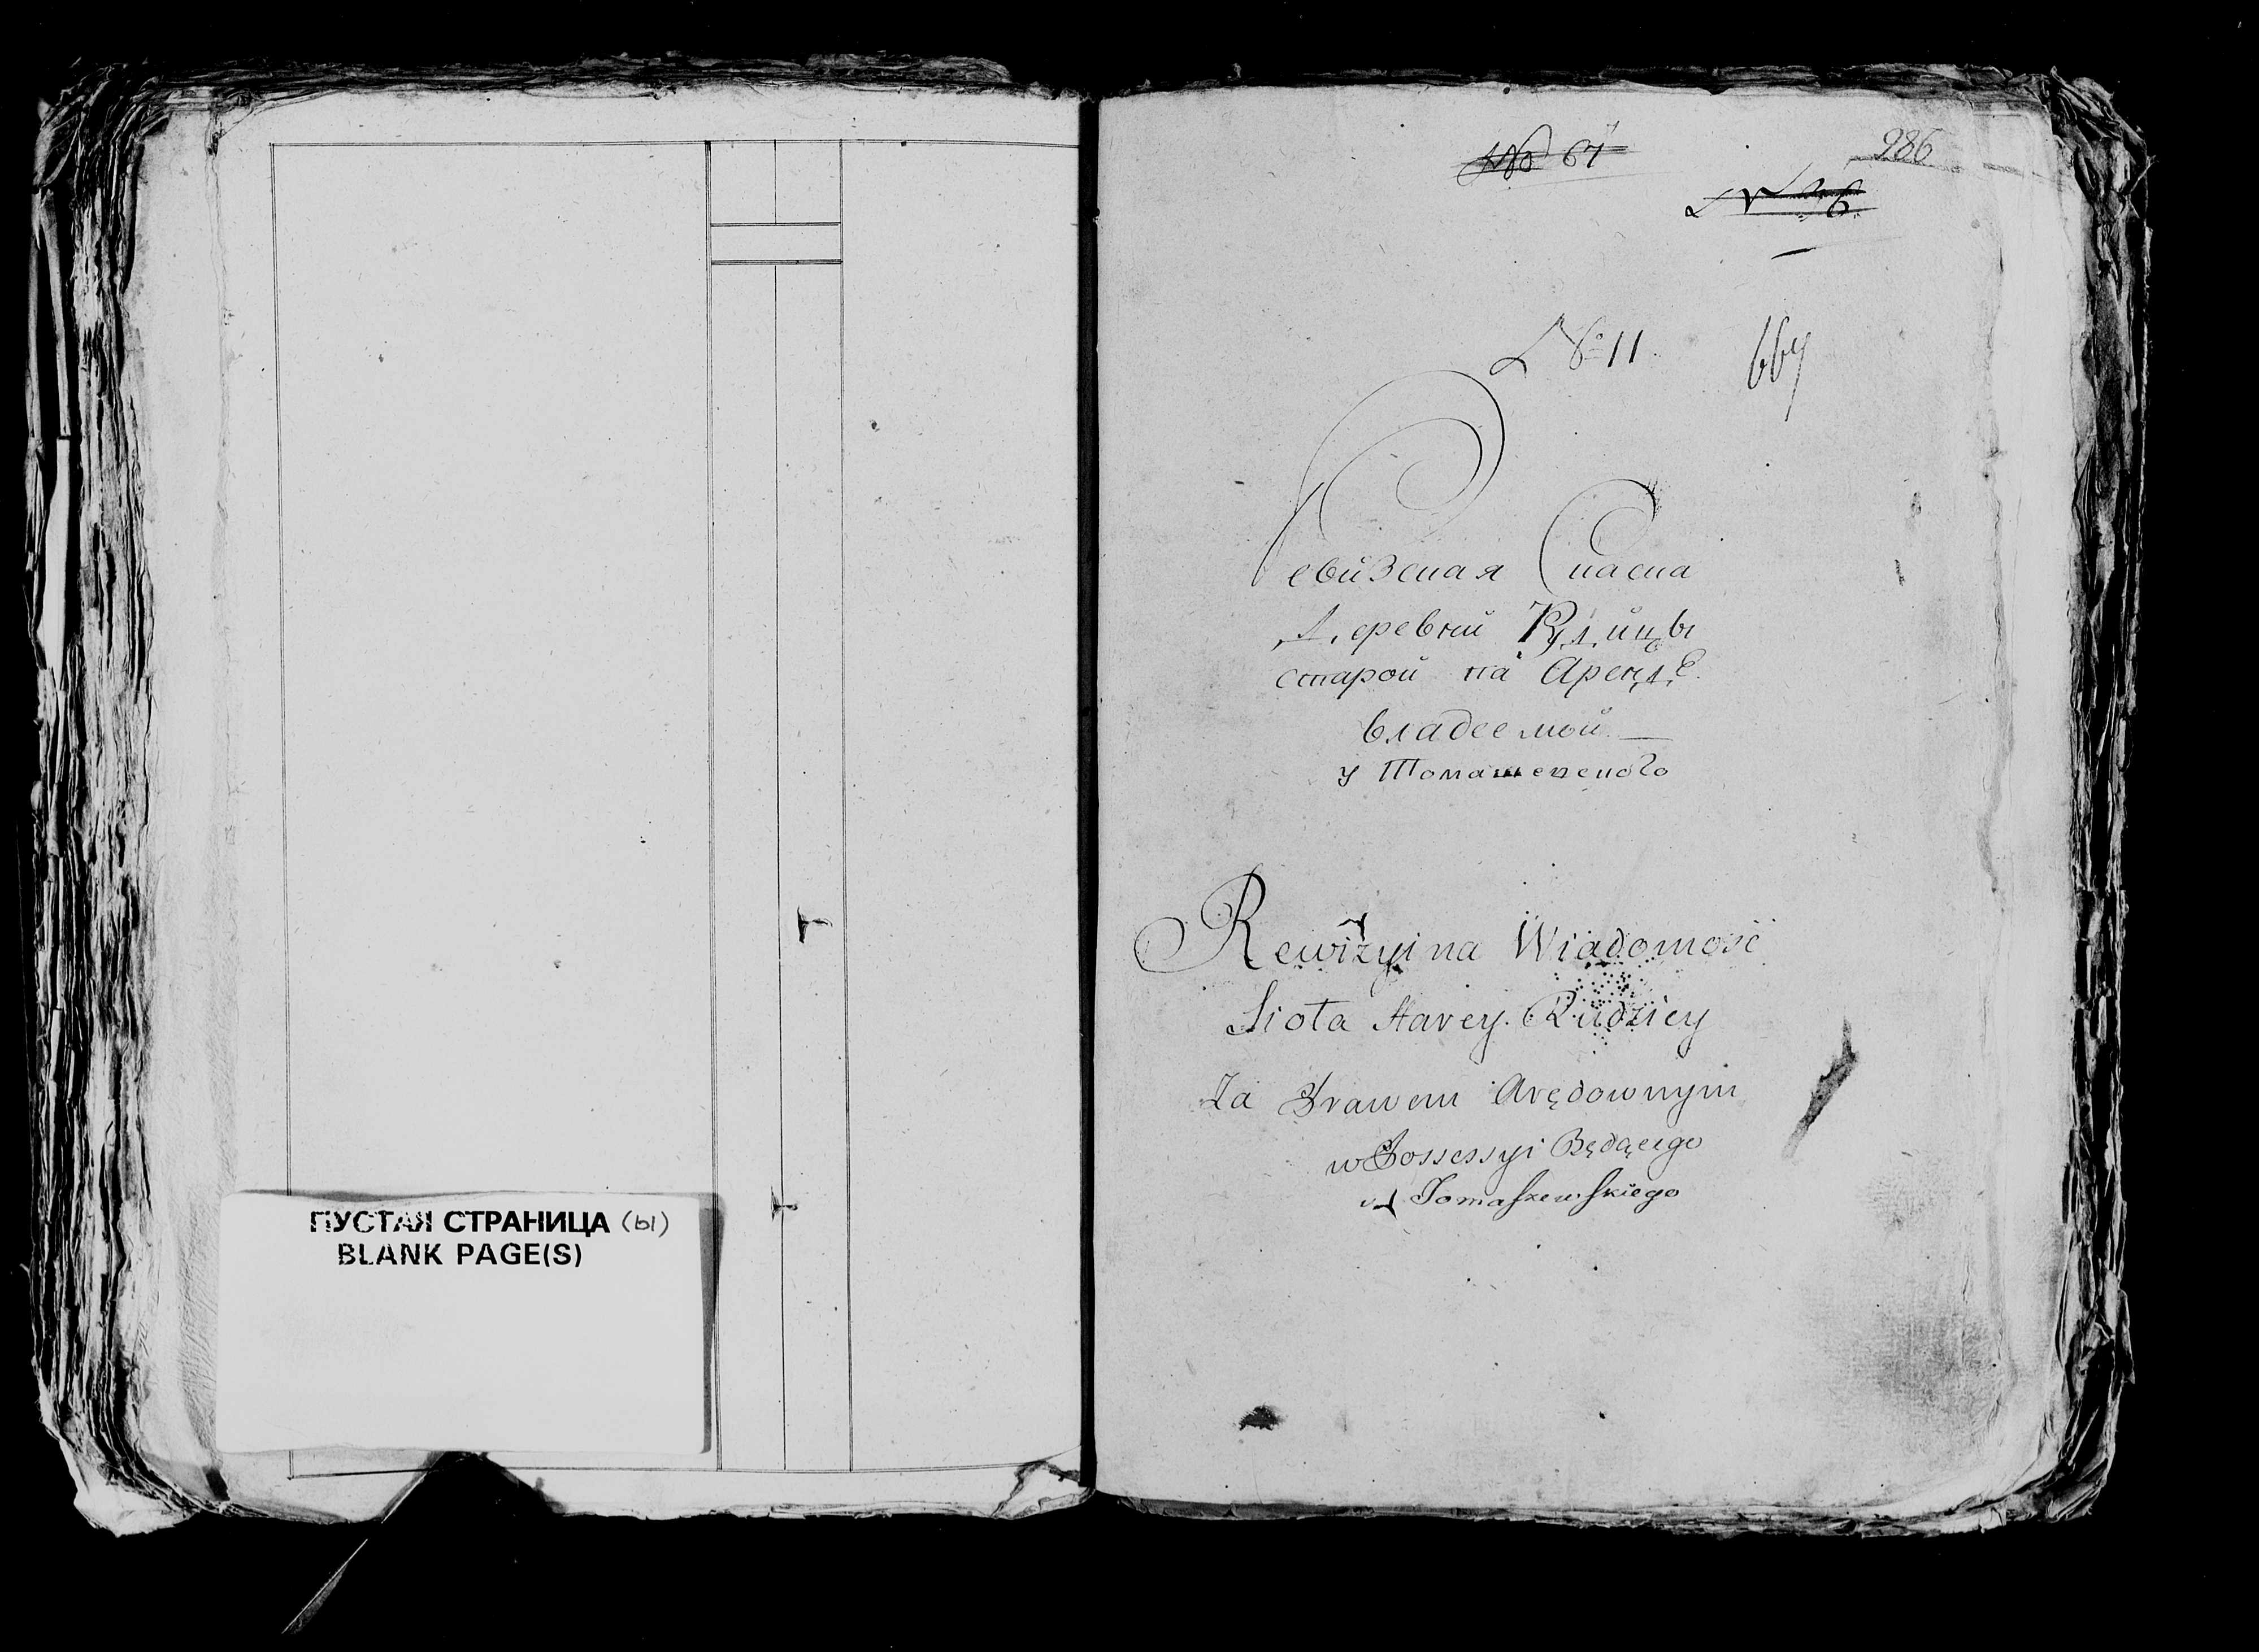 ПУСТАЯ СТРАНИЦА (ы)
BLANK PAGE(S)
№ 67
986
№ 11
667
Ревизская Сказка
Деревни Рудицы
старой на Аренде
владеемой
у Томашевского
Rewizyina Wiadomość
Sioła Starey Rudzicy
Za Prawem Arędownym
w Possessyi Będącego
u Tomaszewskiego